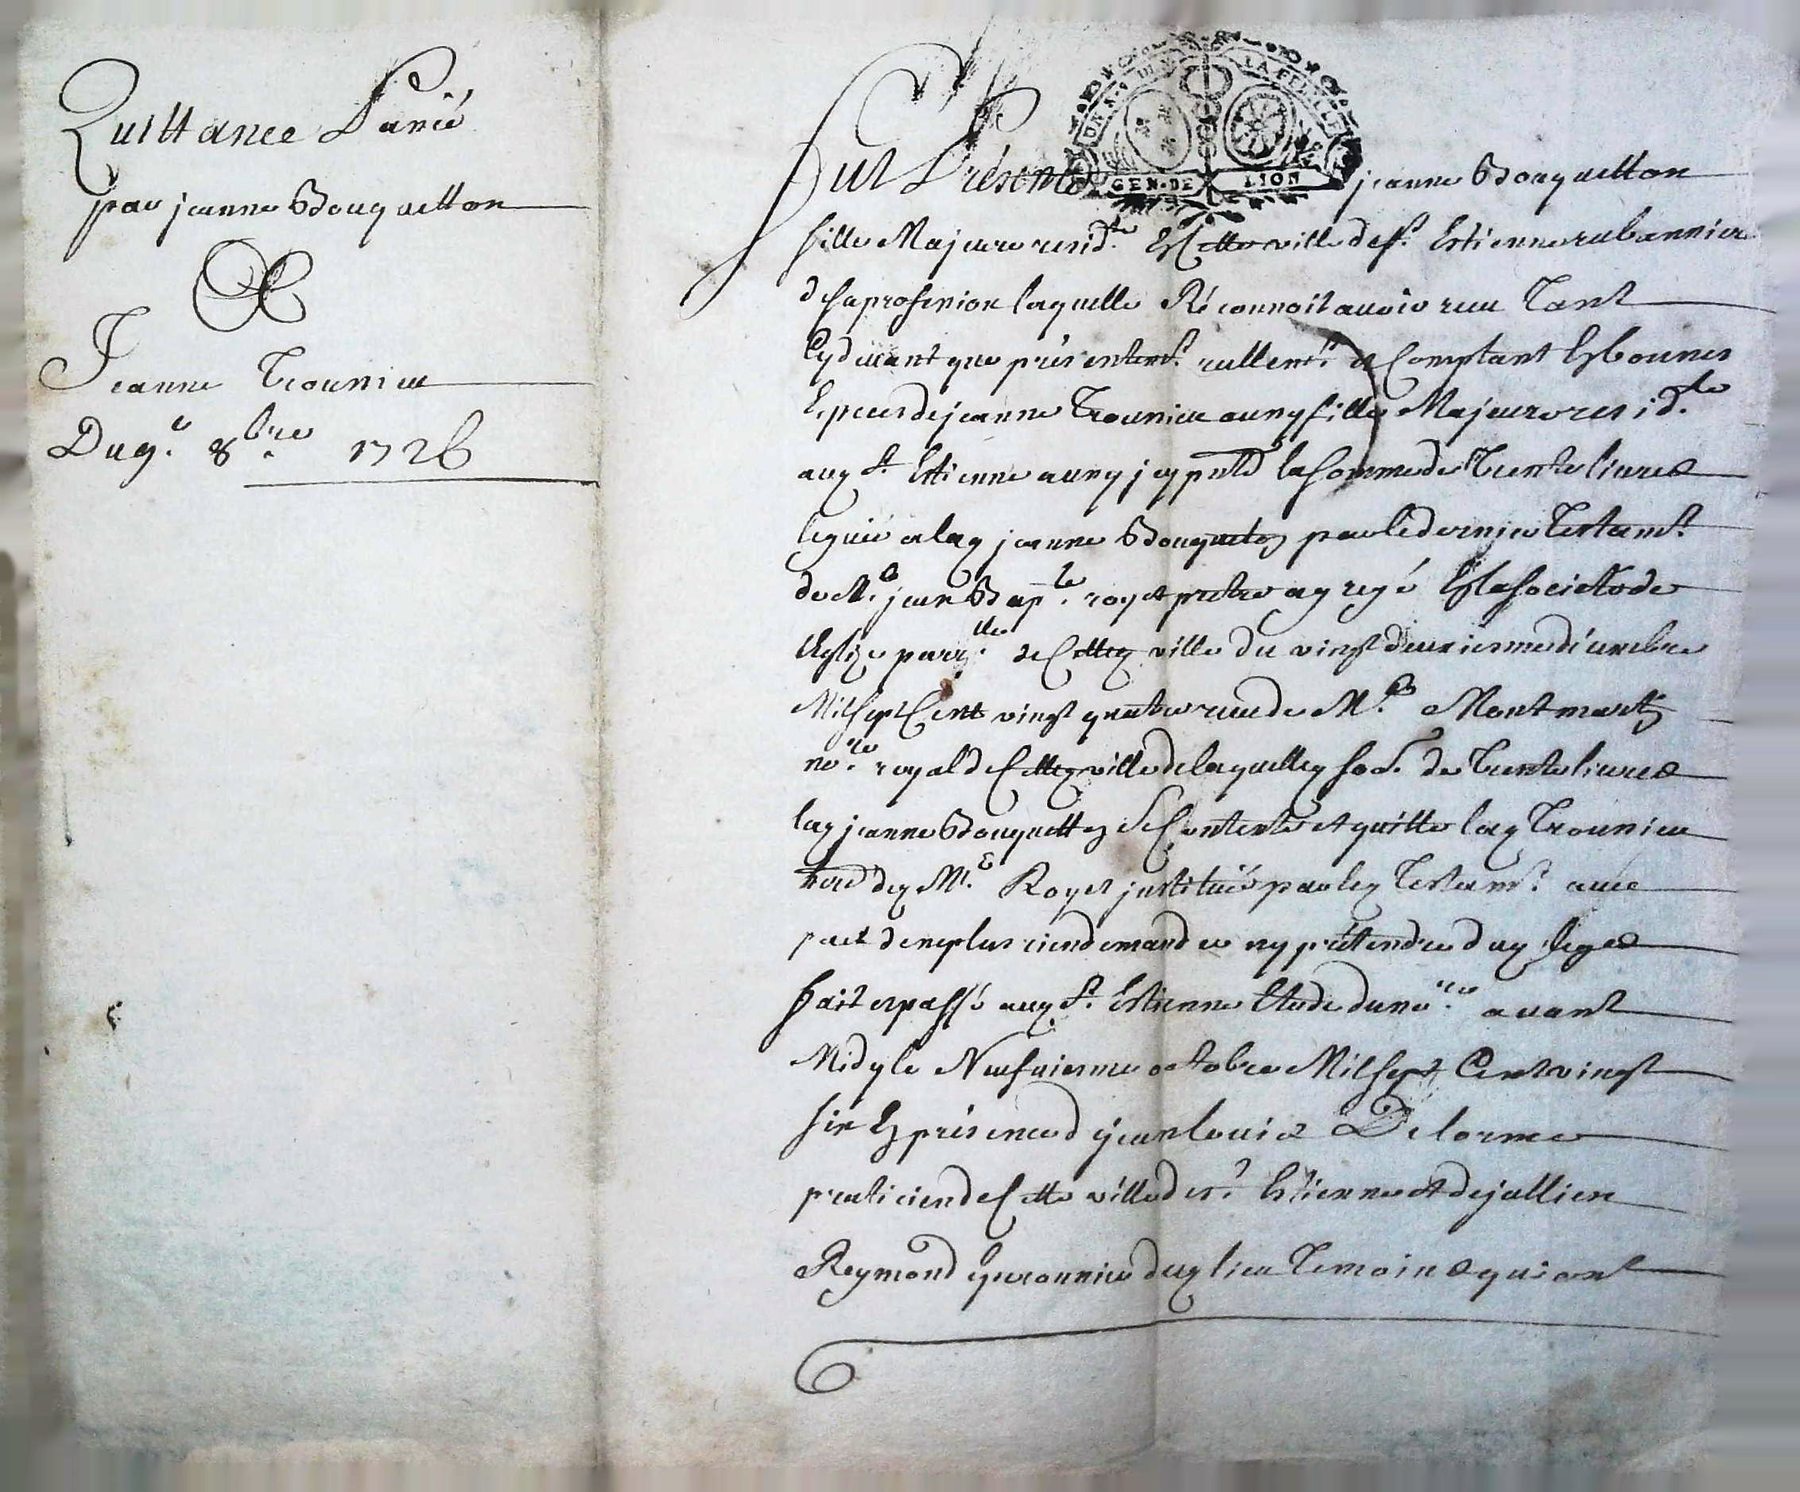 Quittance Passé
par jeanne Bouquetton
A
Jeanne Trounieu
Du 9.e 8.bre 1726
GEN. DE LION
Fut Présente jeanne Bouquetton
fille Majeure resid.te En cette ville de S.t Estienne rubanniere
de sa profession laquelle Réconnoit avoir reçu Tant
Cydevant que présentem.t réellem.t et Comptant En bonnes
Especes de jeanne Trounieu aussy fille Majeure resid.te
aud S.t Estienne aussy icy pnte la somme de Trente livres
leguée a lad jeanne Bouquetton par le dernier Testam.t
de M.e jean Bap.te royet pretre agregé En la société de
l'Eglize parr.lle de Cette ville du vingt deuxiesme décembre
Mil sept Cent vingt quatre reçu de M.e Montmartin
no.re royal de Cette ville de laquelle so.e de Trente livres
lad jeanne Bouquetton se Contente et quitte lad Trounieu
her.e dud M.e Royet instituée par led Testam.t avec
pact de n'en plus rien demander ny prétendre dud legat
fait et passé aud S.t Estienne Etude du no.re avant
Midy le Neufviesme octobre Mil sept Cent vingt
six En présence de jean louis Delorme
praticien de Cette ville de S.t Estienne et de jullien
Reymond Eperonnier dud lieu Temoins qui ont